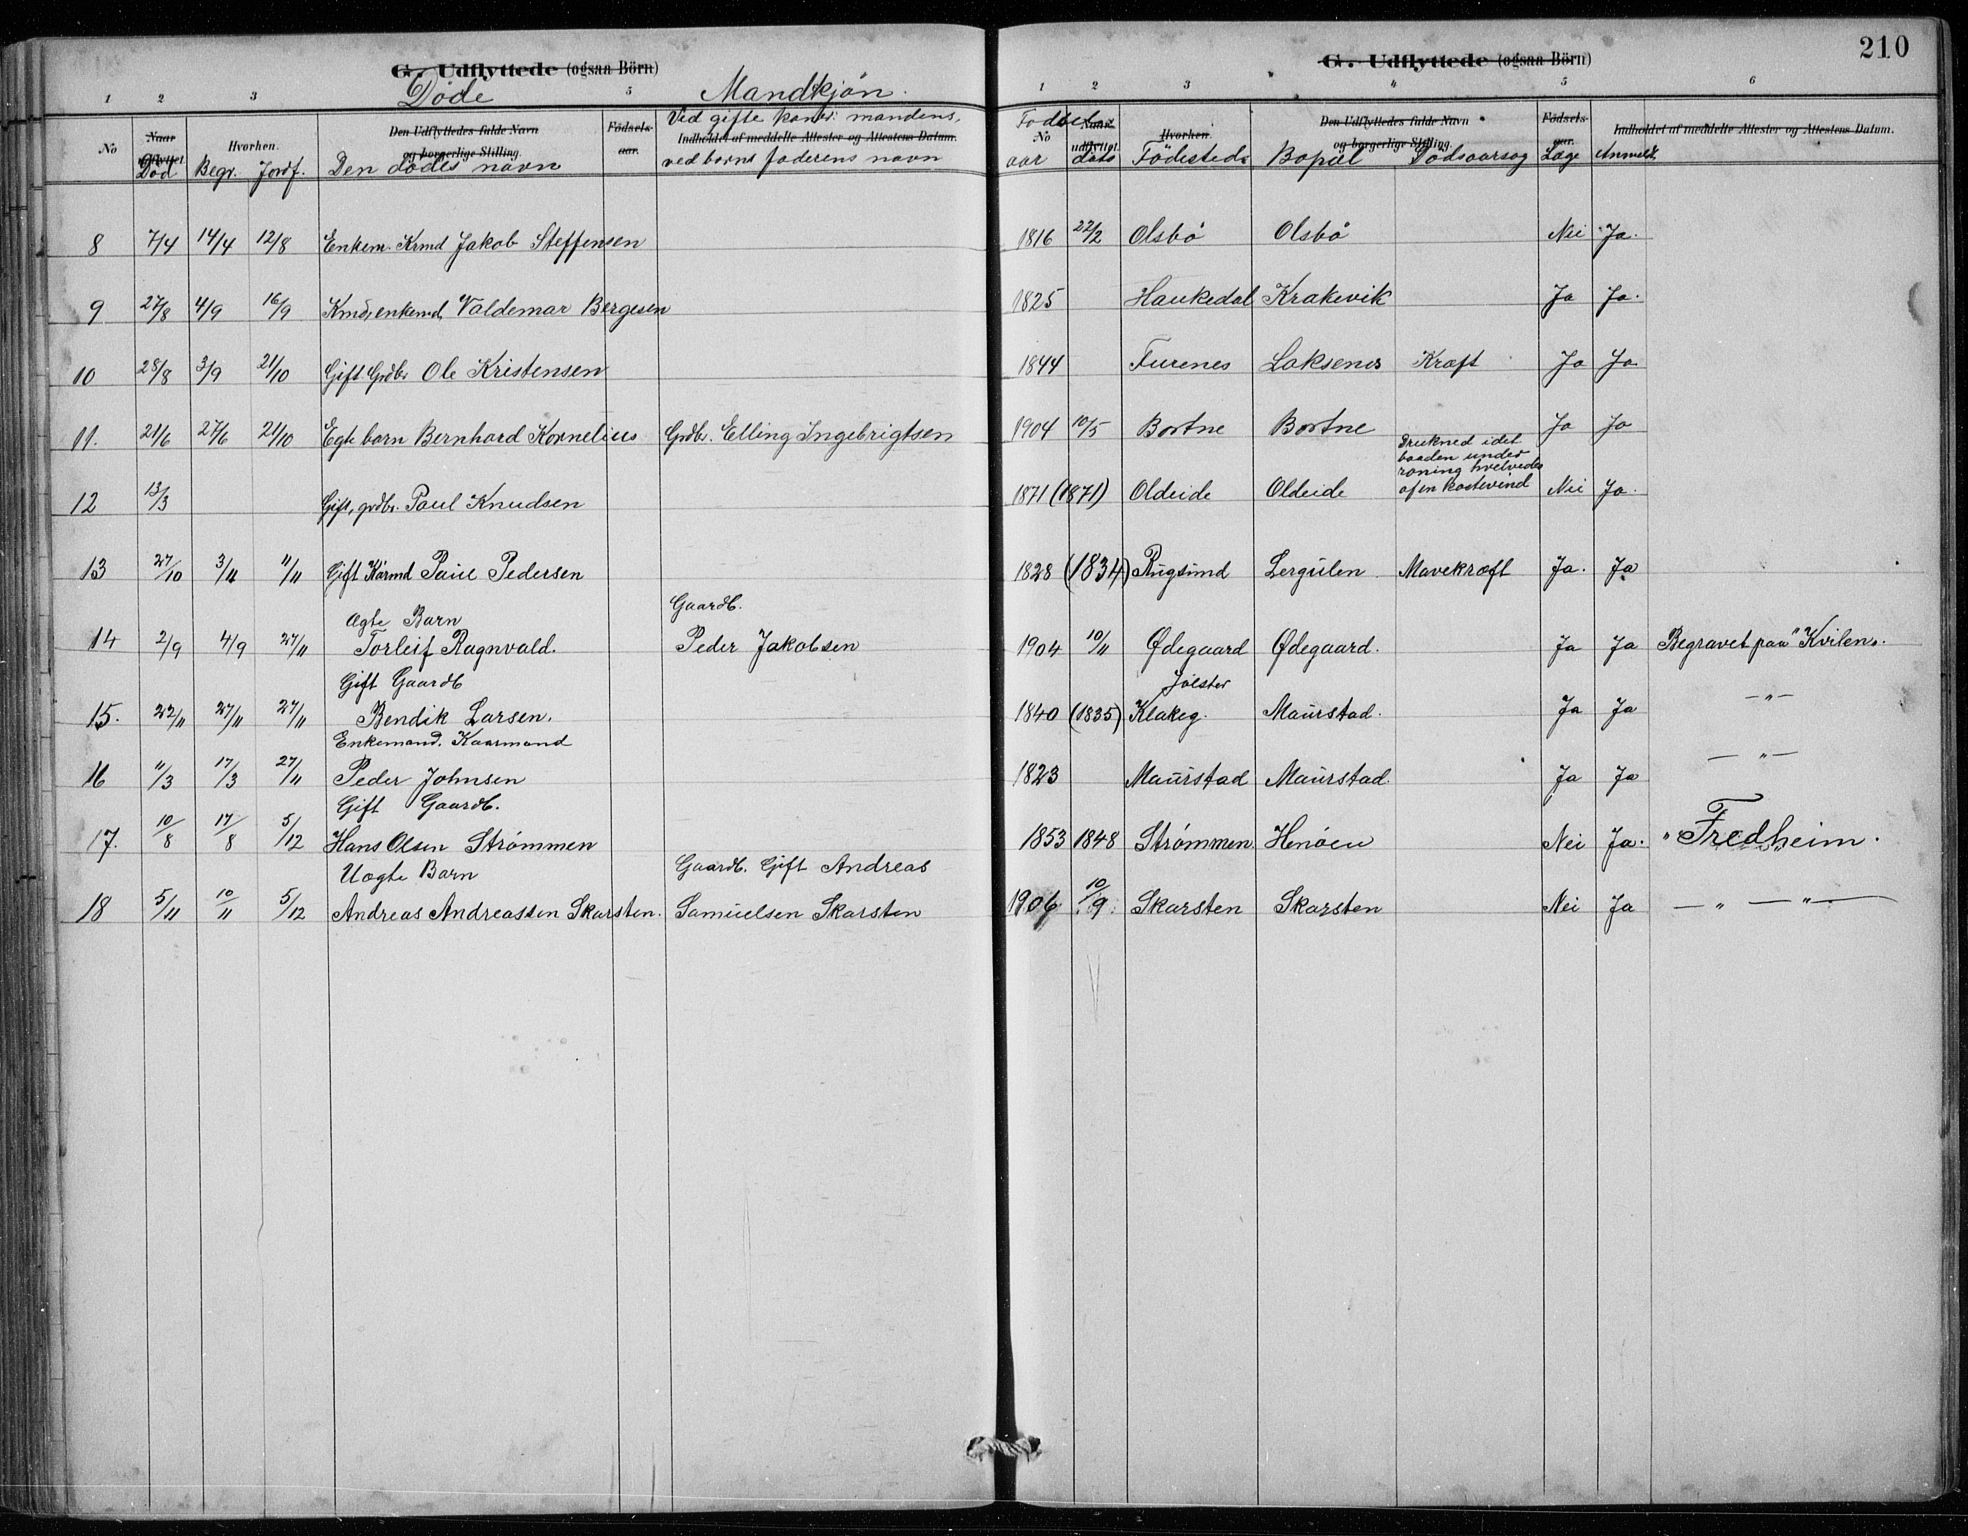 G. Udflyttede (ogsaa Börn)
Døde Mandkjøn.
1 2 3 5
No Naar udflyttet Hvorhen. Den Udflyttedes fulde Navn og borgerlige Stilling. Födsels-aar. Indholdet af meddelte Attester og Attestens Datum.
Død Begr. Jordf. Den dødes navn Ved gifte koner: mandens,
ved børns faderens navn
8 7/4 14/4 12/8 Enkem. Krmd Jakob Steffensen
9 27/8 4/9 16/9 Kmd, enkemd, Valdemar Bergesen
10 28/8 3/9 21/10 Gift Grdbr Ole Kristensen
11. 21/6 27/6 21/10 Egte barn Bernhard Kornelius Grdbr. Elling Ingebrigtsen
12 13/3 Gift, grdbr. Paul Knudsen
13 27/10 3/11 11/11 Gift Kårmd Paul Pedersen
Ægte Barn Gaardb.
14 2/9 4/9 27/11 Torleif Ragnvald. Peder Jakobsen
Gift Gaardb
15. 22/11 27/11 27/11 Bendik Larsen.
Enkemand. Kaarmand
16 11/3 17/3 27/11 Peder Johnsen
Gift Gaardb.
17. 10/8 17/8 5/12 Hans Olsen Strømmen
Uægte Barn Gaardb. Gift Andreas
18 5/11 10/11 5/12 Andreas Andreassen Skarsten. Samuelsen Skarsten
G. Udflyttede (ogsaa Börn) 210
1 2 3 4 5 6
No Naar udflyttet Hvorhen. Den Udflyttedes fulde Navn og borgerlige Stilling. Födsels-aar. Indholdet af meddelte Attester og Attestens Datum.
aar dato Fødested Bopæl Dødsaarsag Læge Anmeldt
1816 22/2 Olsbø Olsbø Nei Ja.
1825 Haukedal Krakevik Ja Ja.
1844 Furenes Laksenes Kræft Ja Ja
1904 10/5 Bortne Bortne Ja Ja
Drukned idet
baaden under
roning hvelvedes
af en kastevind
1871 (1871) Oldeide Oldeide Nei Ja.
1828 (1834) Rugsund Lergulen Mavekræft Ja. Ja
1904 10/11 Ødegaard Ødegaard. Ja Ja Begravet paa "Kvilen".
Jølster
1840 (1835) Klakeg. Maurstad. Ja Ja —"—
1823 Maurstad Maurstad. Ja Ja —"—
1853 1848 Strømmen Henøen Nei Ja. "Fredheim.
1906 10/9 Skarsten Skarsten Nei Ja —"—"—